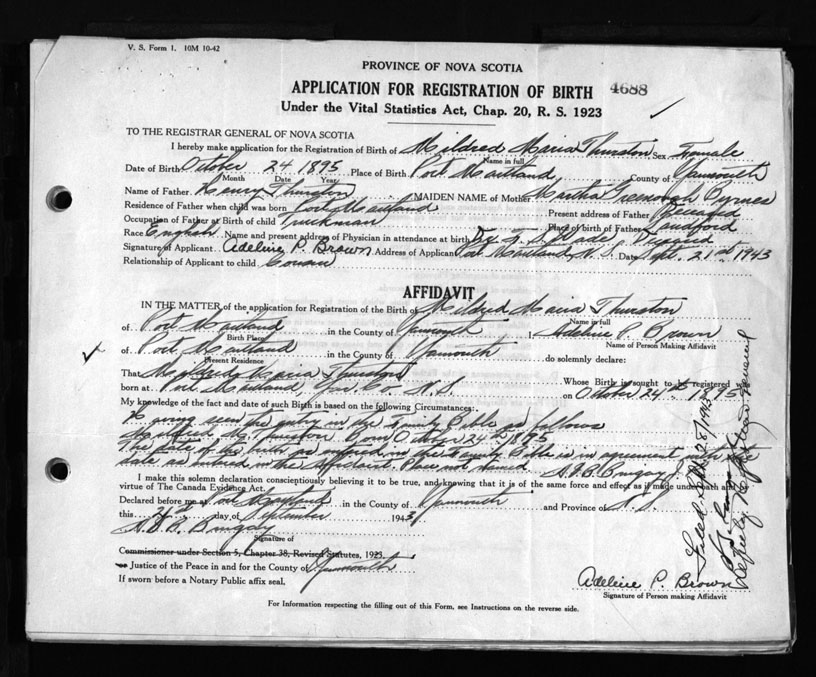 V. S. Form 1. 10M 10-42
PROVINCE OF NOVA SCOTIA
APPLICATION FOR REGISTRATION OF BIRTH 4688
Under the Vital Statistics Act, Chap. 20, R. S. 1923
TO THE REGISTRAR GENERAL OF NOVA SCOTIA
I hereby make application for the Registration of Birth of Mildred Maria Thurston Sex Female
Name in full
Date of Birth October 24 1895 Place of Birth Port Maitland County of Yarmouth
Month Date Year
Name of Father Henry Thurston MAIDEN NAME of Mother Martha Pyrnes
Residence of Father when child was born Port Maitland Present address of Father Deceased
Occupation of Father at Birth of child Truckman Place of birth of Father Sandford
Race English Name and present address of Physician in attendance at birth Deceased
Signature of Applicant Adeline P. Brown Address of Applicant Port Maitland, N. S. Date Sept. 21st 1943
Relationship of Applicant to child Cousin
AFFIDAVIT
IN THE MATTER of the application for Registration of the Birth of Mildred Maria Thurston
Name in full
of Port Maitland in the County of Yarmouth I Adeline P. Brown
Birth Place Name of Person Making Affidavit
of Port Maitland in the County of Yarmouth do solemnly declare:
Present Residence
That Mildred Maria Thurston Whose Birth is sought to be registered was
born at Port Maitland, Yar. Co. N. S. on October 24th 1895
My knowledge of the fact and date of such Birth is based on the following Circumstances:
Having seen the entry in the Family Bible as follows
Mildred Ma. Thurston Born October 24th 1895
The date of the birth as entered in the Family Bible is in agreement with the
date as entered in the Affidavit. Place not named
I make this solemn declaration conscientiously believing it to be true, and knowing that it is of the same force and effect as if made under oath and
virtue of The Canada Evidence Act.
Declared before me at Port Maitland in the County of Yarmouth and Province of N. S.
this 21st day of September 1943
Signature of
Commissioner under Section 5, Chapter 38, Revised Statutes, 1923.
or Justice of the Peace in and for the County of Yarmouth
If sworn before a Notary Public affix seal,
Adeline P. Brown
Signature of Person making Affidavit
For Information respecting the filling out of this Form, see Instructions on the reverse side.
Deputy Registrar General